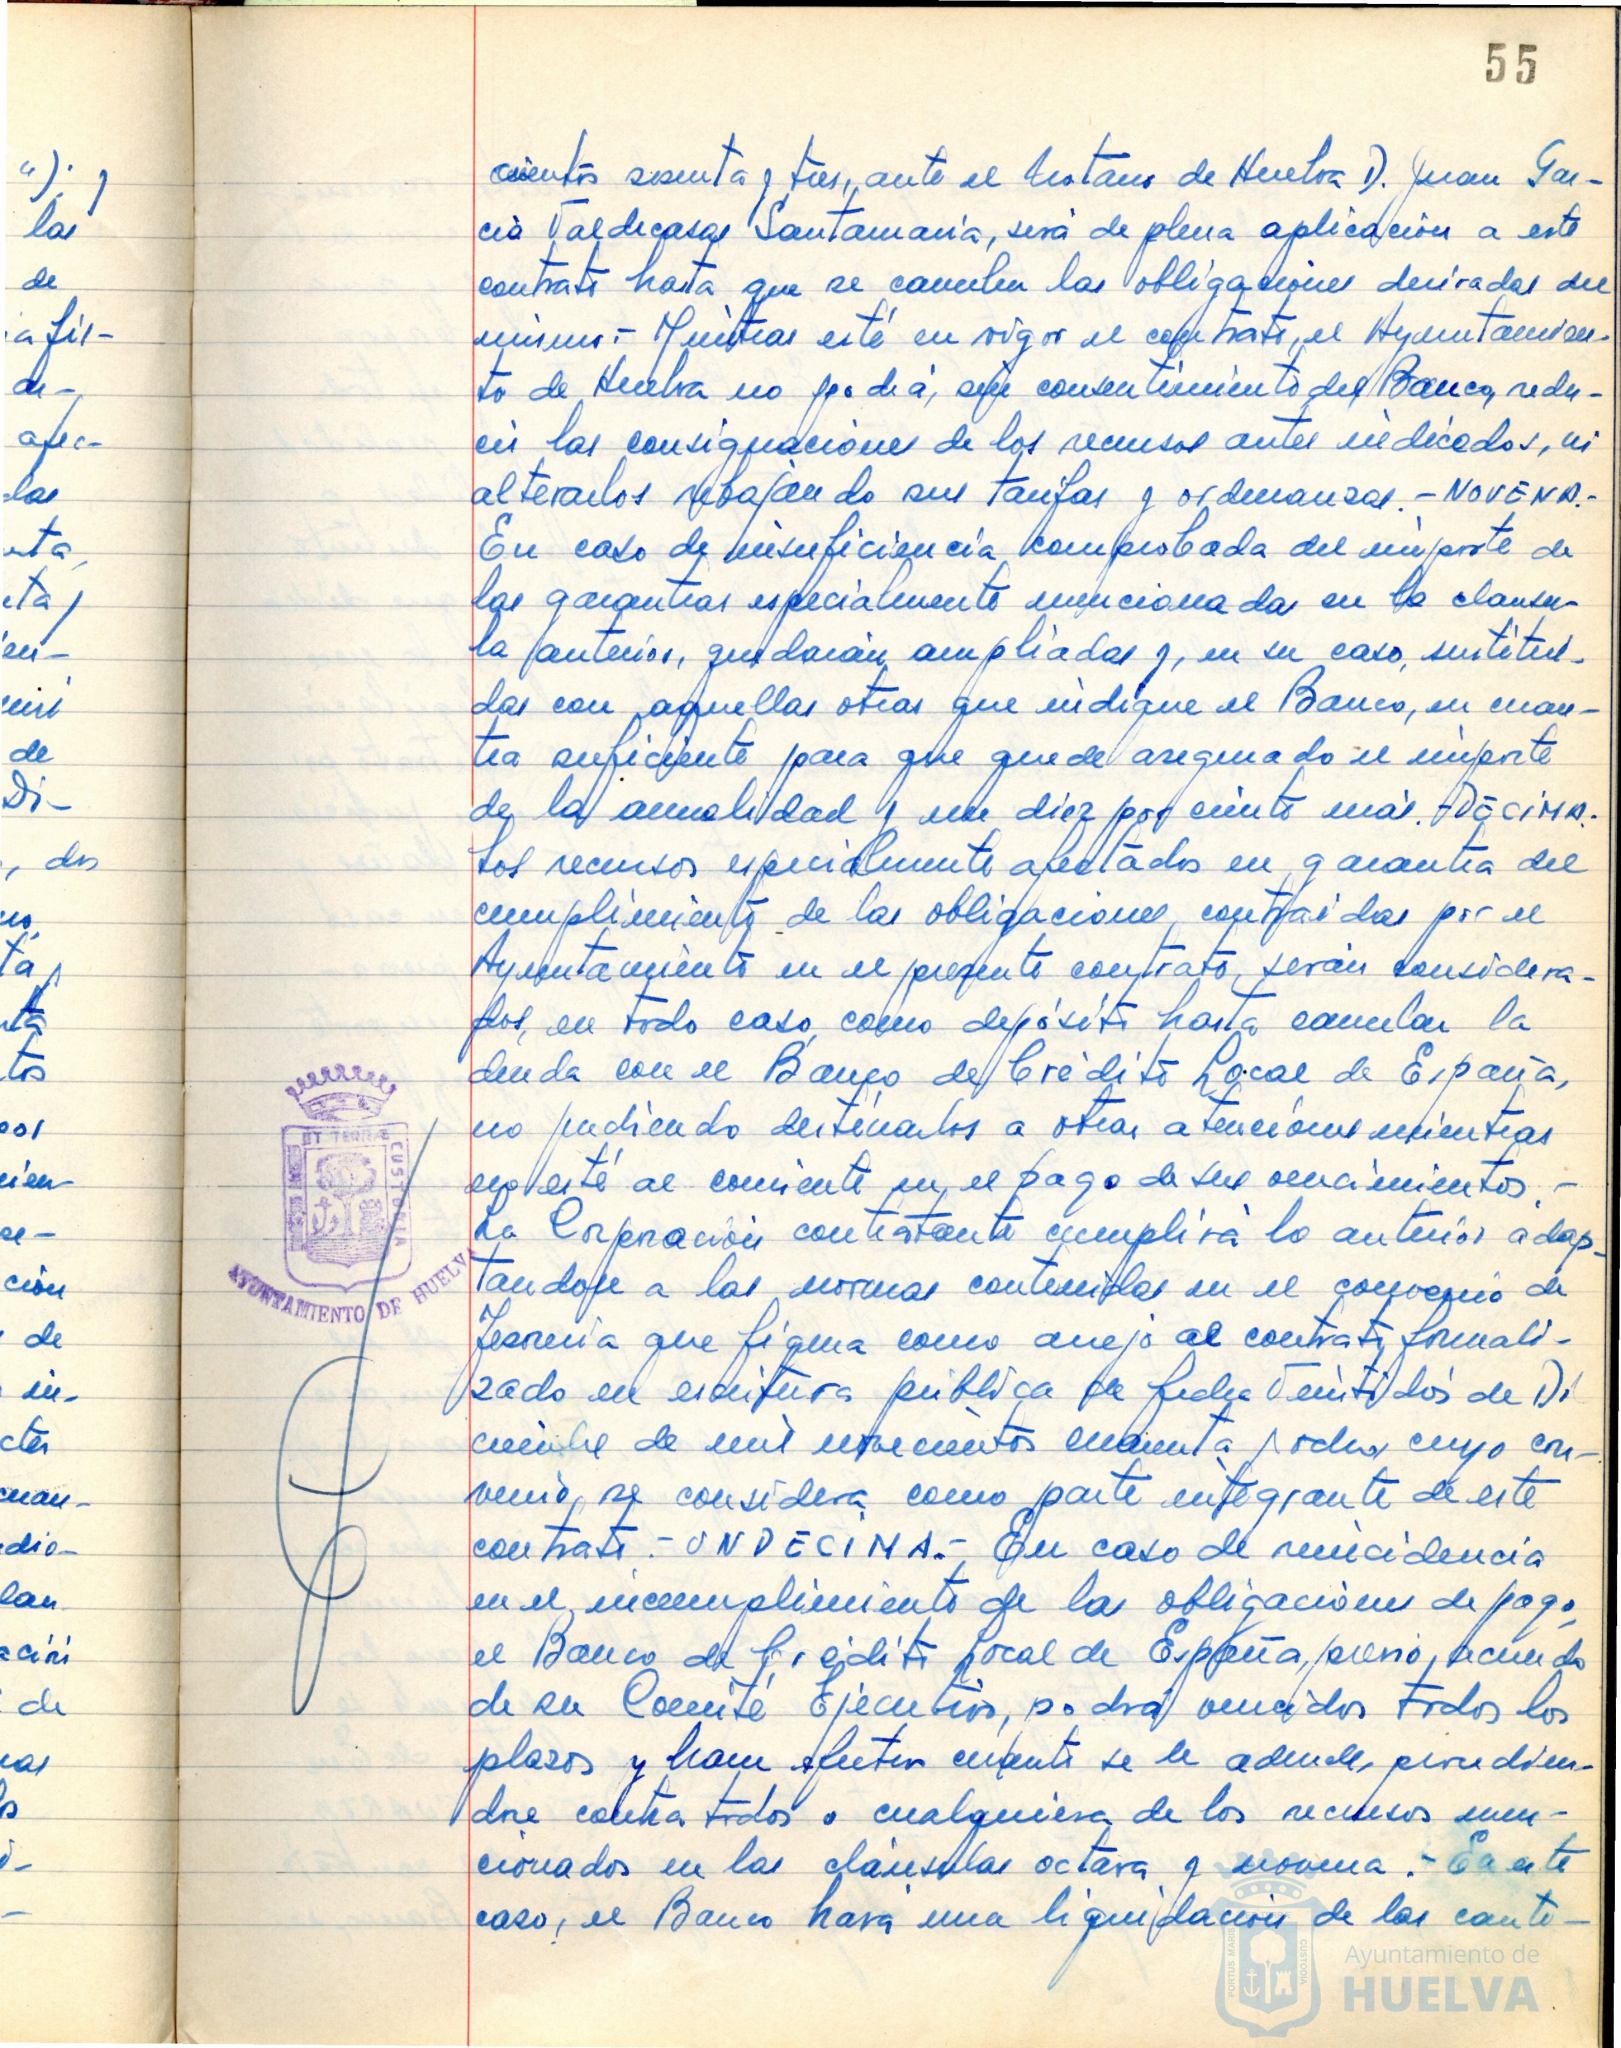 55
cientos sesenta y tres, ante el Notario de Huelva D. Juan Gar-
cia Valdecasas Santamaría, será de plena aplicación a este
contrato hasta que se cancelen las obligaciones derivadas del
mismo.- Mientras esté en vigor el contrato, el Ayuntamien-
to de Huelva no podrá, sin consentimiento del Banco, redu-
cir las consignaciones de los recursos antes indicados, ni
alterarlos rebajando sus tarifas y ordenanzas.- NOVENA.-
En caso de insuficiencia comprobada del importe de
las garantias especialmente mencionadas en la clausu-
la anterior, quedarán ampliadas y, en su caso, sustitui-
das con aquellas otras que indique el Banco, en cuan-
tia suficiente para que quede asegurado el importe
de la anualidad y un diez por ciento más.- DÉCIMA.
Los recursos especialmente afectados en garantia del
cumplimiento de las obligaciones contraidas por el
Ayuntamiento en el presente contrato, serán considera-
dos, en todo caso, como depósito hasta cancelar la
deuda con el Banco de Crédito Local de España,
no pudiendo destinarlos a otras atenciones mientras
no esté al corriente en el pago de sus vencimientos.-
La Corporación contratante cumplirá lo anterior adap-
tandose a las normas contenidas en el convenio de
Tesoreria que figura como anejo al contrato formali-
zado en escritura pública de fecha Veintidós de Di
ciembre de mil novecientos cuyo con-
venio, se considera como parte integrante de este
contrato.- UNDECIMA.- En caso de reincidencia
en el incumplimiento de las obligaciones de pago,
el Banco de Crédito Local de España, previo acuerdo
de su Comité Ejecutivo, podrá vencidos todos los
plazos y hacer efectivo cuanto se le adeude, procedien-
dose contra todos o cualquiera de los recursos men-
cionados en las cláusulas octava y novena.- En este
caso, el Banco hará una liquidación de las canti-
ET TERRAE CUSTODIA
AYUNTAMIENTO DE HUELVA
");  y
las
de
a fis-
afec-
las
de
Di-
, dos
tos
cion
de
de
PORTUS MARIS
CUSTODIA
Ayuntamiento de
HUELVA